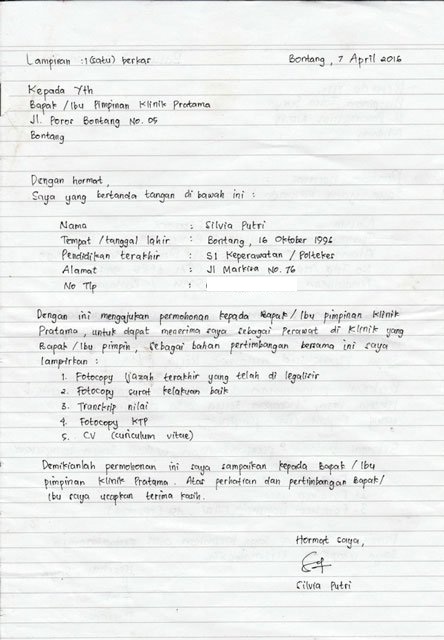 Lampiran : 1 (satu) berkas Bontang, 7 April 2016
Kepada Yth
Bapak / Ibu Pimpinan Klinik Pratama
Jl. Poros Bontang No. 05
Bontang
Dengan hormat,
Saya yang bertanda tangan di bawah ini :
Nama : Silvia Putri
Tempat / tanggal lahir : Bontang, 16 Oktober 1996
Pendidikan terakhir : S1 Keperawatan / Poltekes
Alamat : Jl Markisa No. 76
No Tlp :
Dengan ini mengajukan permohonan kepada Bapak / Ibu pimpinan Klinik
Pratama, untuk dapat menerima saya sebagai Perawat di Klinik yang
Bapak / Ibu pimpin, sebagai bahan pertimbangan bersama ini saya
lampirkan :
1. Fotocopy Ijazah terakhir yang telah di legalisir
2. Fotocopy surat kelakuan baik
3. Transkrip nilai
4. Fotocopy KTP
5. CV (curiculum vitae)
Demikianlah permohonan ini saya sampaikan kepada Bapak / Ibu
pimpinan Klinik Pratama. Atas perhatian dan pertimbangan Bapak/
Ibu saya ucapkan terima kasih.
Hormat saya,
Silvia Putri